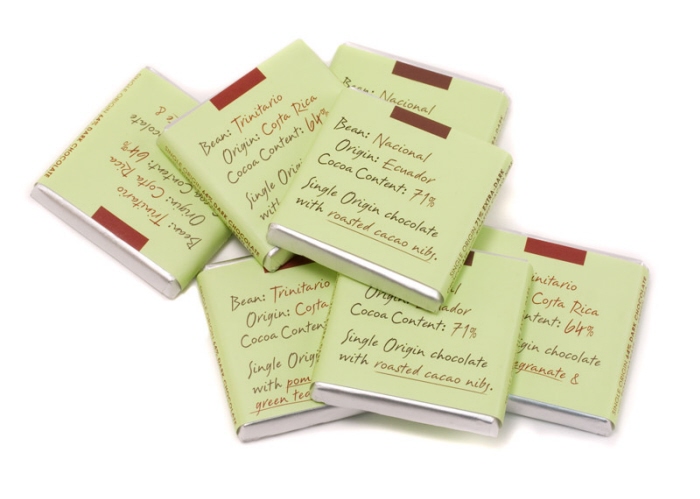 Bean: Trinitario
Origin: Costa Rica
Cocoa Content: 64%
Bean: Trinitario
Origin: Costa Rica
Cocoa Content: 64%
Single Origin
Bean: Nacional
Bean: Nacional
Origin: Ecuador
Cocoa Content: 71%
Single Origin chocolate
with roasted cacao nibs.
Bean: Trinitario
Origin: Costa
Cocoa Content:
Single Origin
with pom
green tea
Origin:
Cocoa Content: 71%
Single Origin chocolate
with roasted cacao nibs.
Trinitario
Costa Rica
64%
Origin chocolate
&